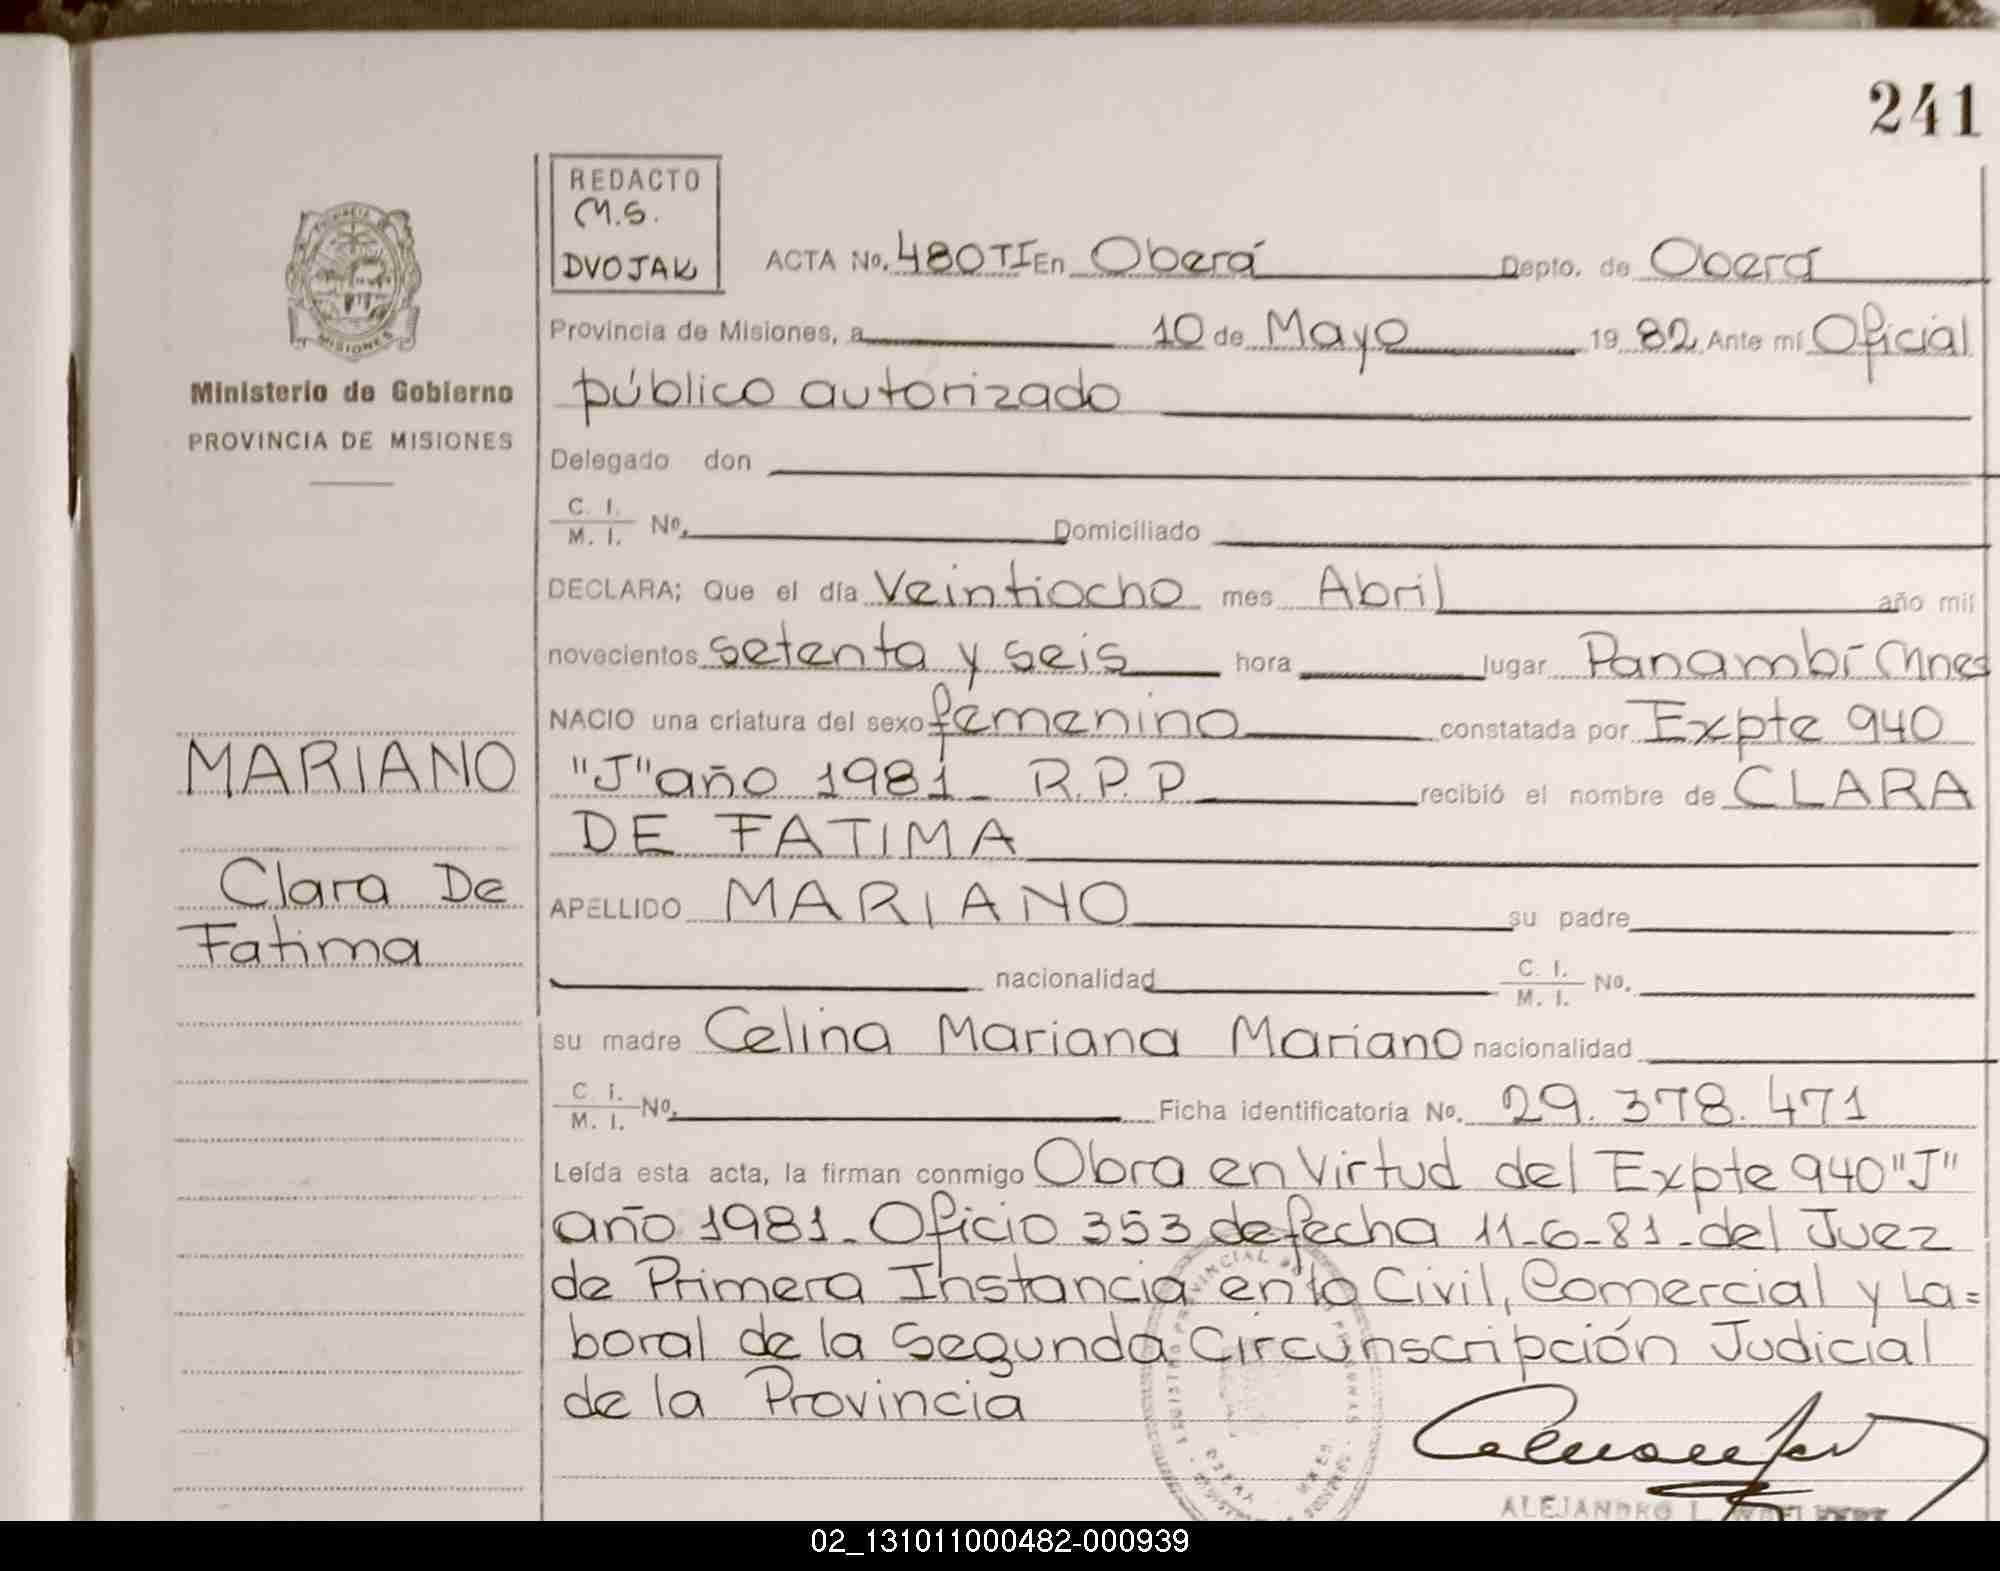 241
REDACTO
M.S.
DVOJAK
ACTA No. 480TI En Oberá Depto. de Oberá
Provincia de Misiones, a 10 de Mayo 19 82 Ante mí Oficial
público autorizado
MISIONES
Ministerio de Gobierno
PROVINCIA DE MISIONES
Delegado don
C. I.
M. I. No. Domiciliado
DECLARA; Que el día Veintiocho mes Abril año mil
novecientos setenta y seis hora lugar Panambí Mnes
NACIO una criatura del sexo femenino constatada por Expte 940
"J" año 1981_ R.P.P recibió el nombre de CLARA
DE FATIMA
MARIANO
Clara De
Fatima
APELLIDO MARIANO su padre
nacionalidad C. I.
M. I. No.
su madre Celina Mariana Mariano nacionalidad
C. I.
M. I. No. Ficha identificatoria No. 29.378.471
Leída esta acta, la firman conmigo Obra en Virtud del Expte 940 "J"
año 1981_ Oficio 353 de fecha 11-6-81_ del Juez
de Primera Instancia en lo Civil, Comercial y La=
boral de la Segunda Circunscripción Judicial
de la Provincia
ALEJANDRO L.
02_131011000482-000939